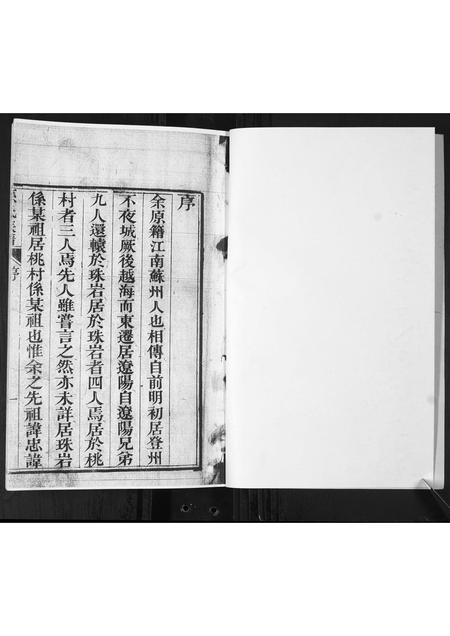 序
余原籍江南蘇州人也相傳自前明初居登州
不夜城厥後越海而東遷居遼陽自遼陽兄弟
九人還轅於珠岩居於珠岩者四人焉居於桃
村者三人焉先人雖嘗言之然亦未詳居珠岩
係某祖居桃村係某祖也惟余之先祖諱忠諱
序
一